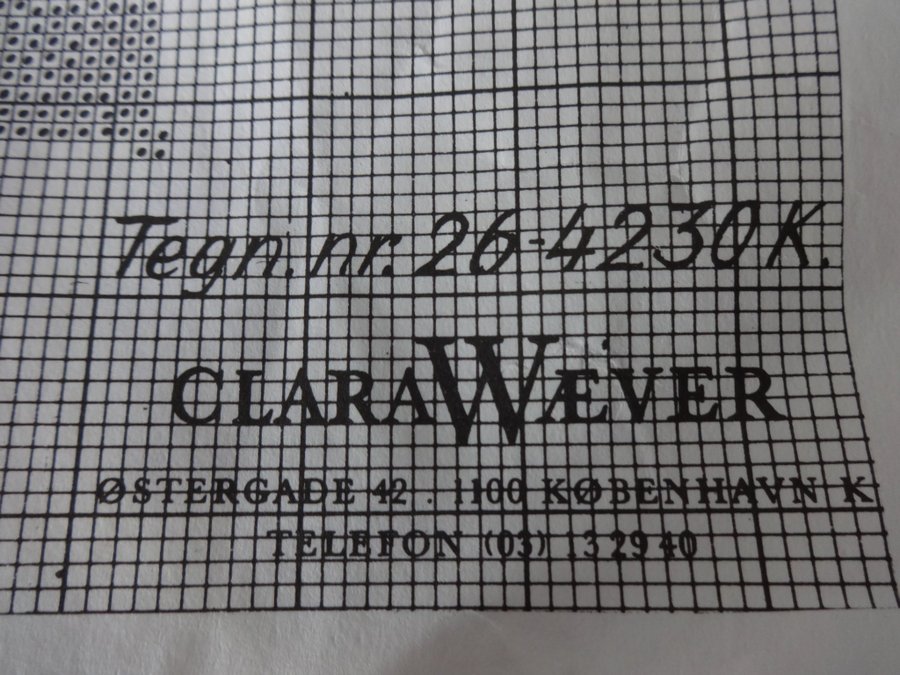 Tegn. nr. 26-4230 K.
CLARA WÆVER
ØSTERGADE 42 . 1100 KØBENHAVN K
TELEFON (03) 13 29 40